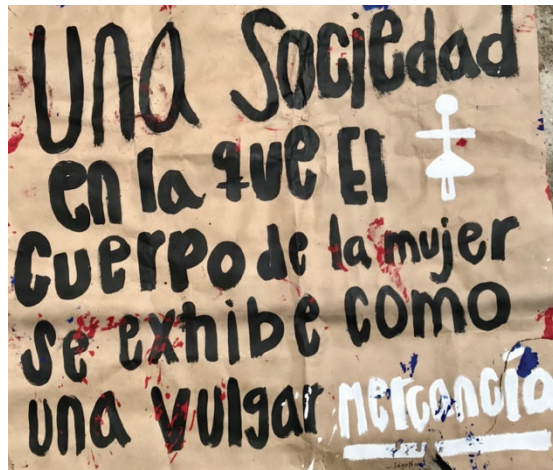 Una Sociedad
en la que El
Cuerpo de la mujer
se exhibe como
una vulgar mercancía